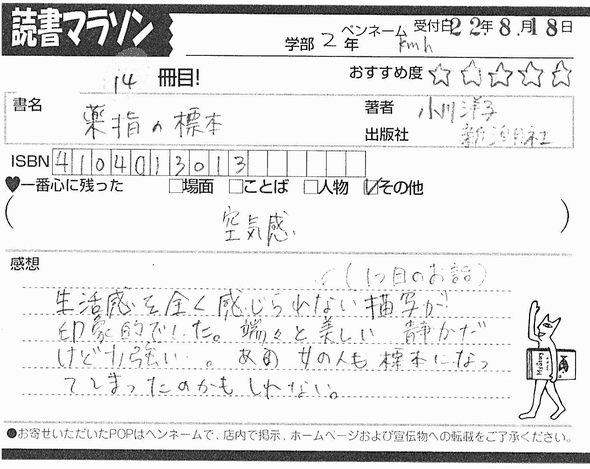 読書マラソン
学部 2 年 ペンネーム kmh 受付日 22年 8月 18日
14 冊目!
おすすめ度 ☆☆☆☆☆
書名 薬指の標本
著者 小川洋子
出版社 新潮社
ISBN 4104013013
♥一番心に残った □場面 □ことば □人物 ☑その他
( 空気感 )
感想
(1つ目のお話)
生活感を全く感じられない描写が
印象的でした。端々と美しい 静かだ
けど力強い…。あの女の人も標本になっ
てしまったのかもしれない。
●お寄せいただいたPOPはペンネームで、店内で掲示、ホームページおよび宣伝物への転載をご了承ください。